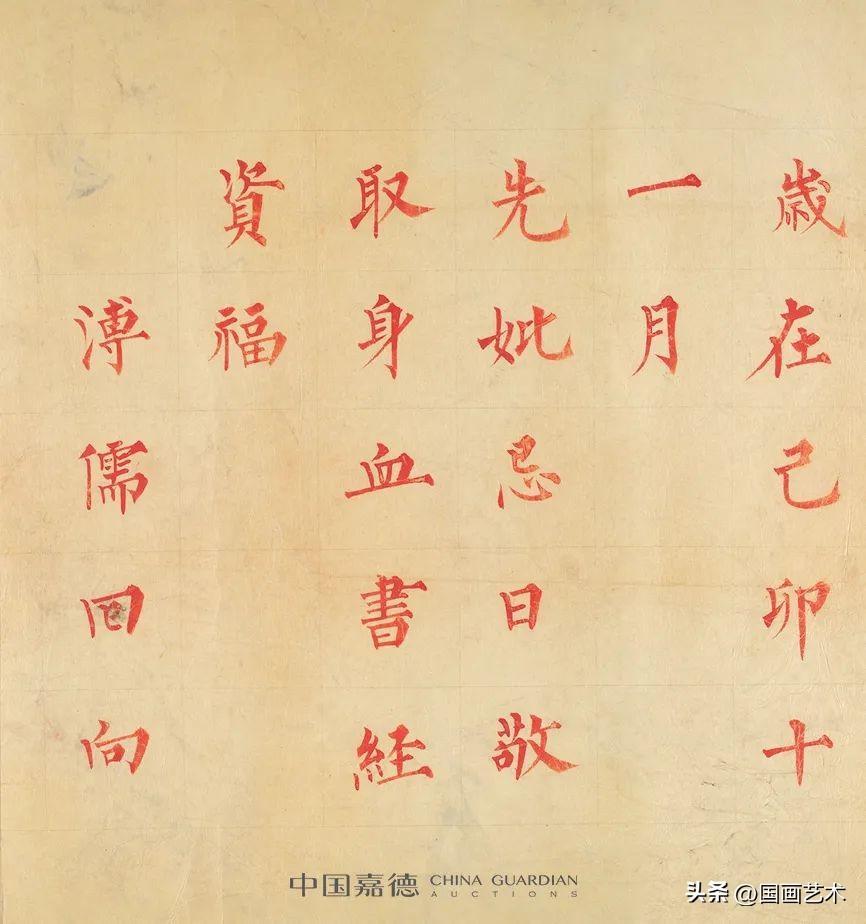 歲在己卯十
一月
先妣忌日敬
取身血書経
資福
溥儒回向
中国嘉德 CHINA GUARDIAN
AUCTIONS
头条 @国画艺术